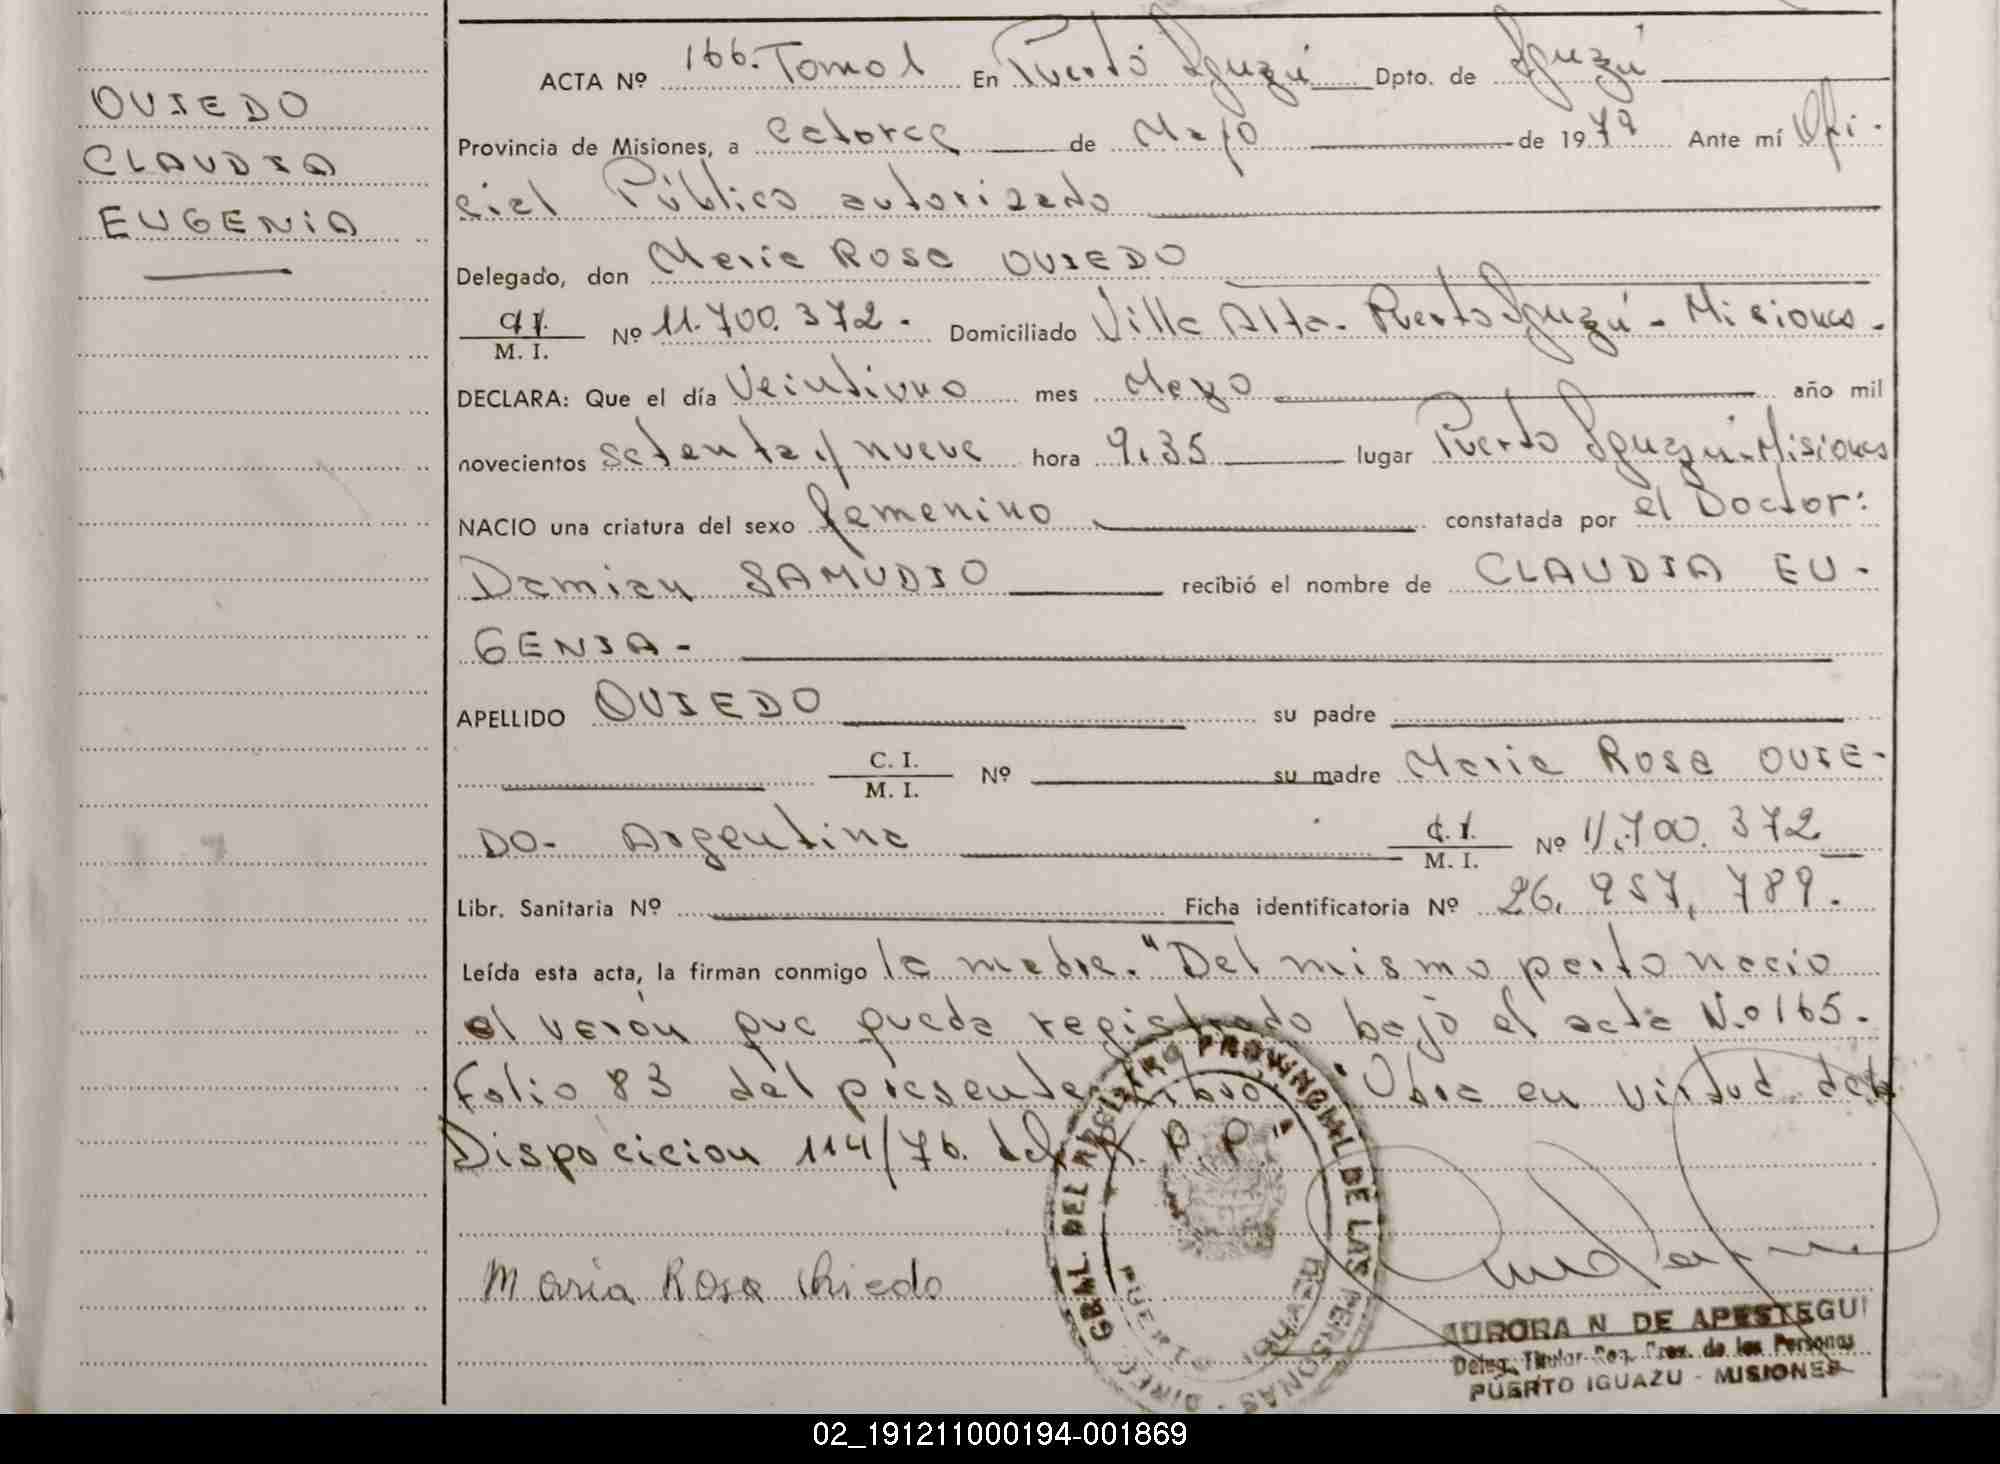 OVIEDO
CLAUDIA
EUGENIA
ACTA Nº 166. Tomo 1 En Puerto Iguazú Dpto. de Iguazú
Provincia de Misiones, a catorce de Mayo de 1979 Ante mí Ofi-
cial Público autorizado
Delegado, don Maria Rosa OVIEDO
C. I. / M. I. Nº 11.700.372. Domiciliado Villa Alta - Puerto Iguazú - Misiones.
DECLARA: Que el día Veintiuno mes Mayo año mil
novecientos setenta y nueve hora 9,35 lugar Puerto Iguazú-Misiones
NACIO una criatura del sexo femenino constatada por el Doctor:
Damian SAMUDIO recibió el nombre de CLAUDIA EU-
GENIA -
APELLIDO OVIEDO su padre
C. I. / M. I. Nº su madre Maria Rosa OVIE-
DO - Argentina C. I. / M. I. Nº 11.700.372
Libr. Sanitaria Nº Ficha identificatoria Nº 26.957.789.
Leída esta acta, la firman conmigo la madre. "Del mismo parto nacio
el varón que queda registrado bajo el acta N.o 165.
Folio 83 del presente libro." Obra en virtud de la
Disposicion 114/76. del R. P. P."
Maria Rosa Oviedo
DIREC. GRAL. DEL REGISTRO PROVINCIAL DE LAS PERSONAS
PUERTO IGUAZU
AURORA N DE APESTEGUI
Deleg. Titular Reg. Prov. de las Personas
PUERTO IGUAZU - MISIONES
02_191211000194-001869